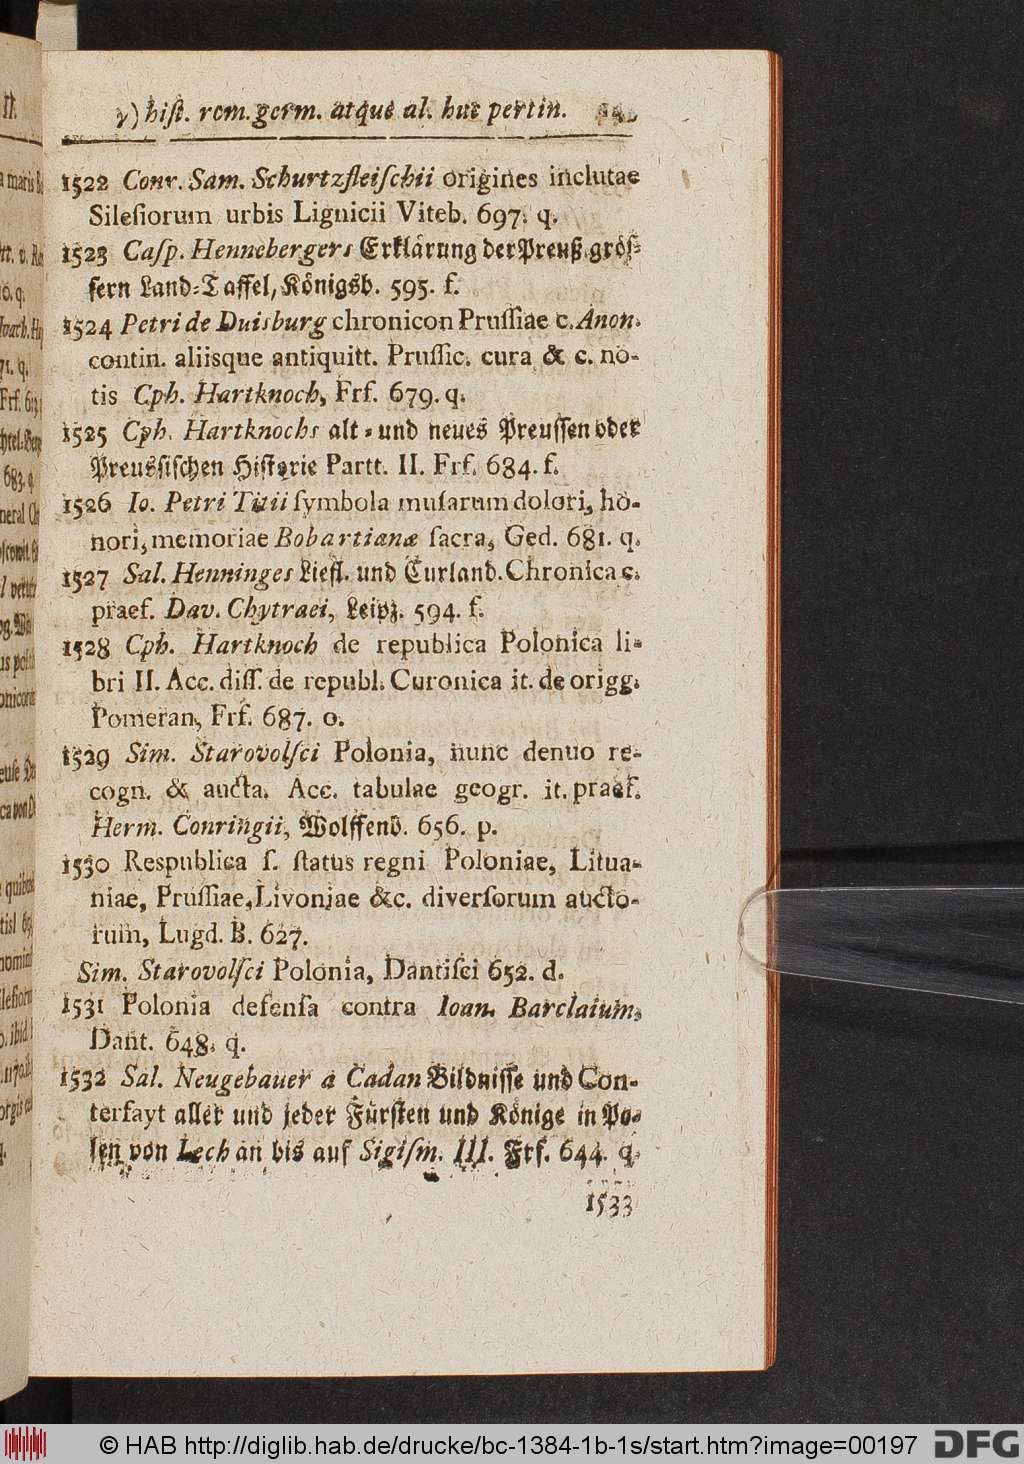 γ) hiſt. rom. germ. atque al. huc pertin.
1522 Conr. Sam. Schurtzfleiſchii origines inclutae
Sileſiorum urbis Lignicii Viteb. 697. q.
1523 Caſp. Hennebergers Erklärung der Preuß. gröſ⸗
ſern Land⸗Taffel, Königsb. 595. f.
1524 Petri de Duisburg chronicon Pruſſiae c. Anon.
contin. aliisque antiquitt. Pruſſic. cura & c. no-
tis Cph. Hartknoch, Frf. 679. q.
1525 Cph. Hartknochs alt⸗und neues Preuſſen oder
Preusſiſchen Hiſtorie Partt. II. Frf. 684. f.
1526 Io. Petri Titii ſymbola muſarum dolori, ho-
nori, memoriae Bobartianæ ſacra, Ged. 681. q.
1527 Sal. Henninges Liefl. und Curland. Chronica c.
praef. Dav. Chytraei, Leipz. 594. f.
1528 Cph. Hartknoch de republica Polonica li-
bri II. Acc. diſſ. de republ. Curonica it. de origg.
Pomeran, Frf. 687. o.
1529 Sim. Starovolſci Polonia, nunc denuo re-
cogn. & aucta. Acc. tabulae geogr. it. praef.
Herm. Conringii, Wolffenb. 656. p.
1530 Respublica ſ. ſtatus regni Poloniae, Litua-
niae, Pruſſiae, Livoniae &c. diverſorum aucto-
rum, Lugd. B. 627.
Sim. Starovolſci Polonia, Dantiſci 652. d.
1531 Polonia defenſa contra Ioan. Barclaium,
Dant. 648. q.
1532 Sal. Neugebauer a Cadan Bildniſſe und Con-
terfayt aller und jeder Fürſten und Könige in Po⸗
len von Lech an bis auf Sigiſm. III. Frf. 644. q.
1533
© HAB http://diglib.hab.de/drucke/bc-1384-1b-1s/start.htm?image=00197 DFG